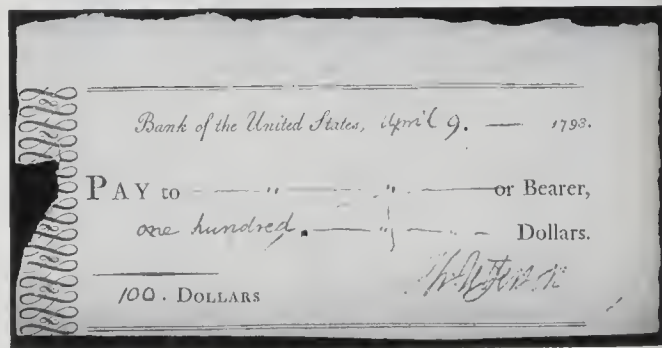 Bank of the United States, April 9. — 1793.
PAY to — " — " — or Bearer,
one hundred. — " — " — Dollars.
100. DOLLARS
Th: Jefferson